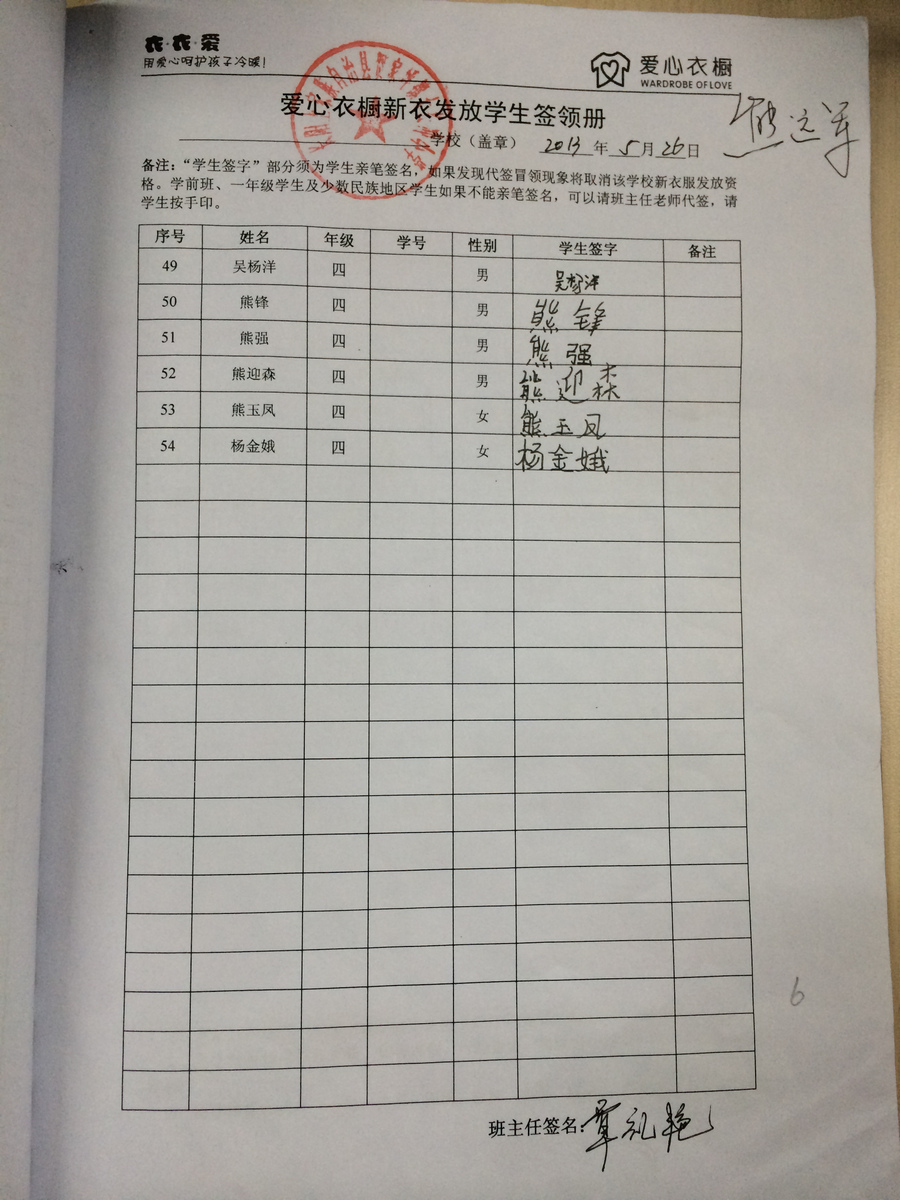 衣·衣·爱
用爱心呵护孩子冷暖！
爱心衣橱
WARDROBE OF LOVE
爱心衣橱新衣发放学生签领册
学校（盖章） 2013 年 5 月 26 日
备注：“学生签字”部分须为学生亲笔签名，如果发现代签冒领现象将取消该学校新衣服发放资
格。学前班、一年级学生及少数民族地区学生如果不能亲笔签名，可以请班主任老师代签，请
学生按手印。
序号 姓名 年级 学号 性别 学生签字 备注
49 吴杨洋 四 男 吴杨洋
50 熊锋 四 男 熊锋
51 熊强 四 男 熊强
52 熊迎森 四 男 熊迎森
53 熊玉凤 四 女 熊玉凤
54 杨金娥 四 女 杨金娥
6
班主任签名：覃礼艳